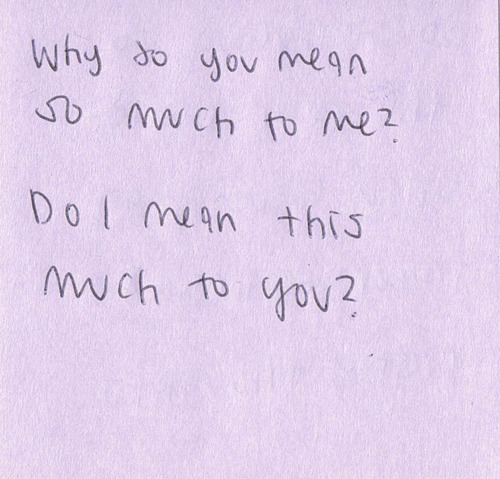 Why do you mean
so much to me?
Do I mean this
much to you?